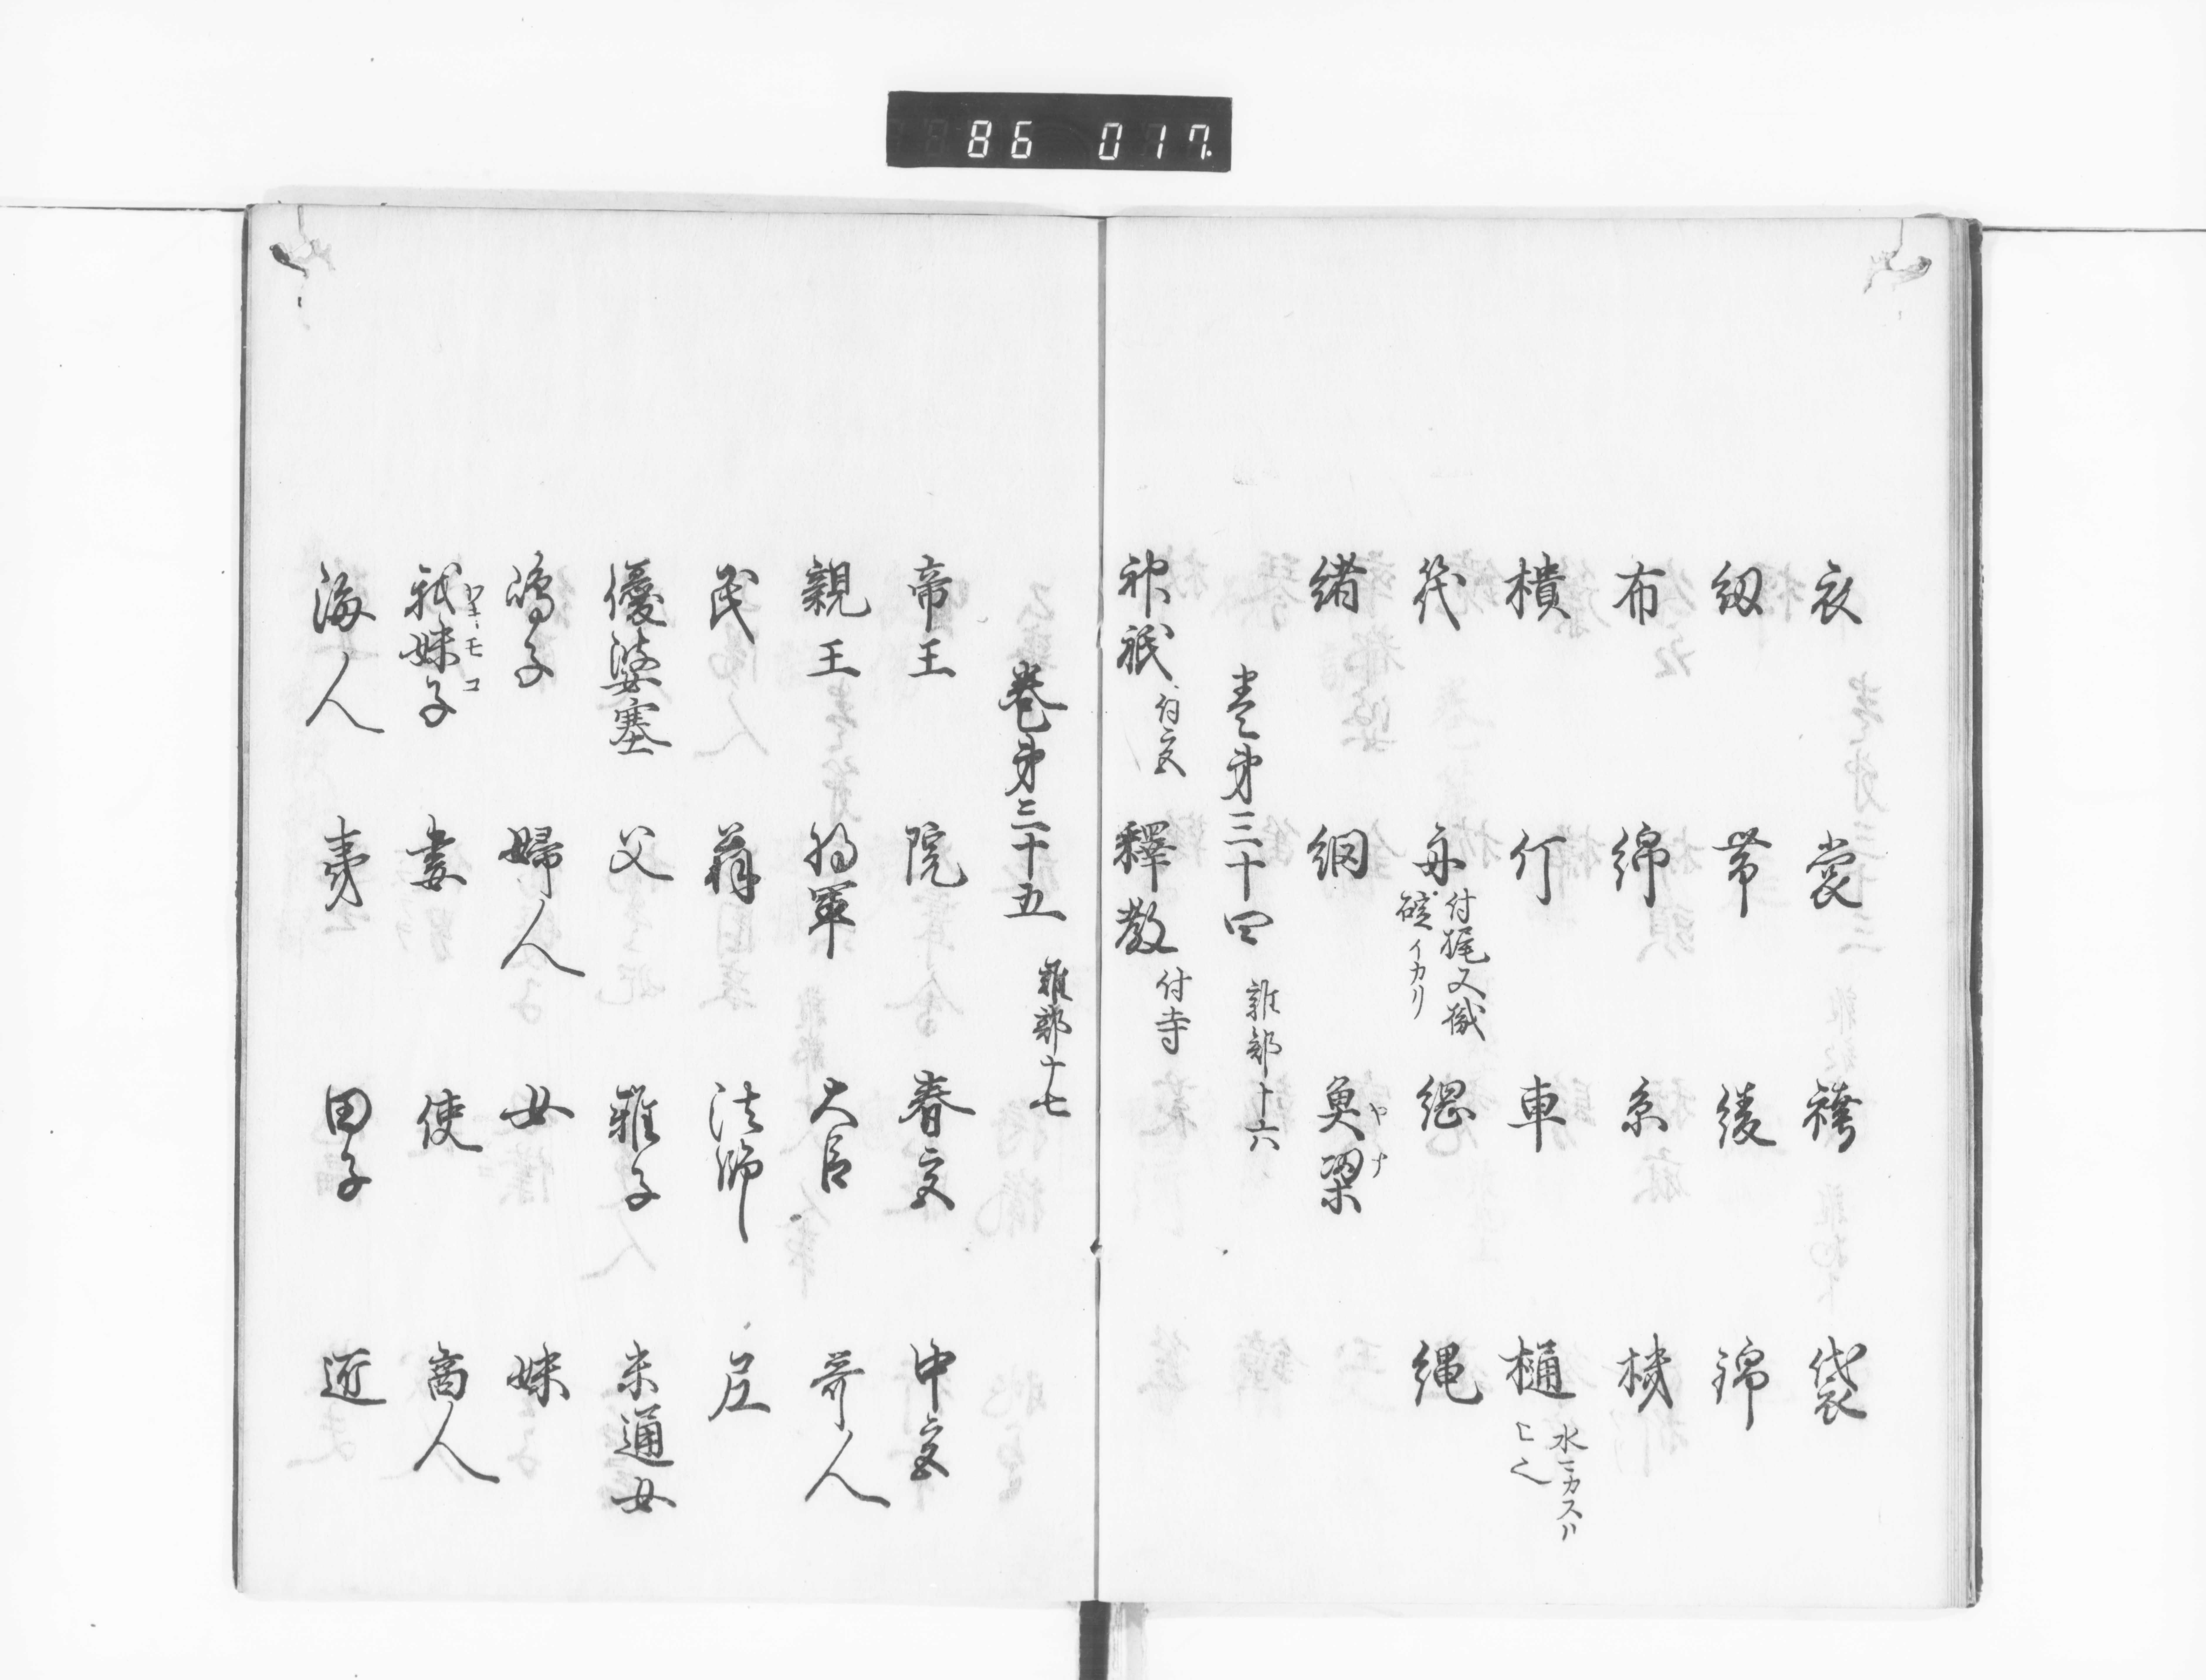 86 017
衣 裳 袴 袋
紐 帯 綾 錦
布 綿 糸 機
樻 灯 車 樋 水ニカスハヒ也
筏 舟 付梶又檝 碇イカリ 縄 繩
緒 網 魚梁 ヤナ
巻第三十四 雑部十六
神祇 付宮 釋教 付寺
巻第三十五 雑部十七
帝王 院 春宮 中宮
親王 将軍 大臣 哥人
民 翁 法師 尼
優婆塞 父 稚子 未通女
嶋子 婦人 女 妹
我妹子 ワキモコ 妻 使 商人
海人 売 田子 遊